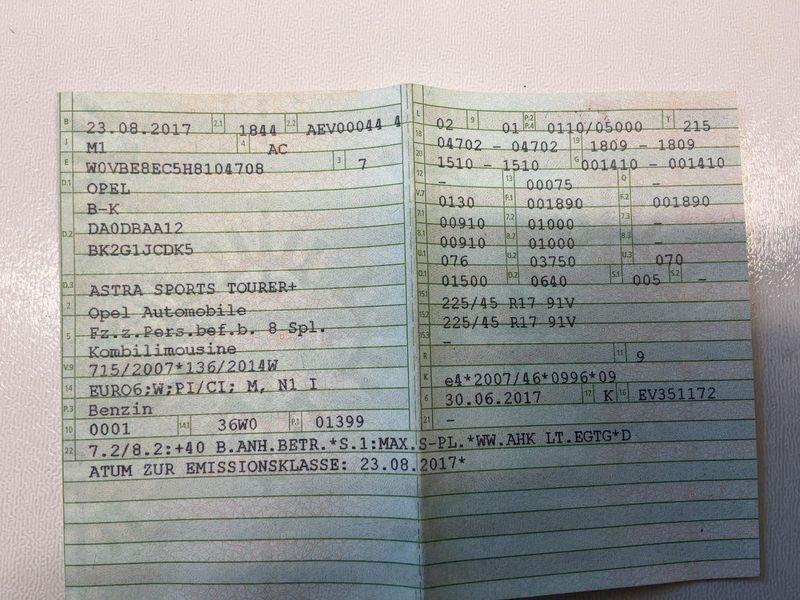 B 23.08.2017 2.1 1844 2.2 AEV00044 4
J M1 4 AC
E W0VBE8EC5H8104708 3 7
D.1 OPEL
B-K
D.2 DA0DBAA12
BK2G1JCDK5
D.3 ASTRA SPORTS TOURER+
2 Opel Automobile
5 Fz.z.Pers.bef.b. 8 Spl.
Kombilimousine
V.9 715/2007*136/2014W
14 EURO6;W;PI/CI; M, N1 I
P.3 Benzin
10 0001 14.1 36W0 P.1 01399
22 7.2/8.2:+40 B.ANH.BETR.*S.1:MAX.S-PL.*WW.AHK LT.EGTG*D
ATUM ZUR EMISSIONSKLASSE: 23.08.2017*
L 02 9 01 P.2 P.4 0110/05000 T 215
18 04702 - 04702 19 1809 - 1809
20 1510 - 1510 G 001410 - 001410
12 - 13 00075 Q -
V.7 0130 F.1 001890 F.2 001890
7.1 00910 7.2 01000 7.3 -
8.1 00910 8.2 01000 8.3 -
U.1 076 U.2 03750 U.3 070
O.1 01500 O.2 0640 S.1 005 S.2 -
15.1 225/45 R17 91V
15.2 225/45 R17 91V
15.3 -
R 11 9
K e4*2007/46*0996*09
6 30.06.2017 17 K 16 EV351172
21 -